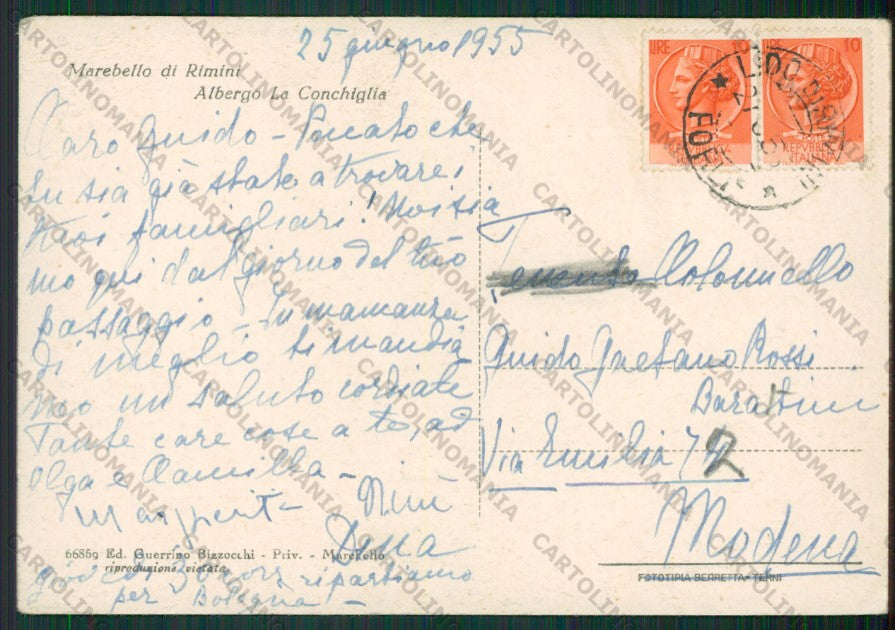 25 giugno 1955
Marebello di Rimini
Albergo La Conchiglia
Caro Guido - Peccato che
tu sia già stato a trovare i
tuoi famigliari! Noi sia
mo qui dal giorno del tuo
passaggio - In mancanza
di meglio ti mandia
mo un saluto cordiale
Tante care cose a te, ad
Olga e Camilla -
Ninì
giovedì 30 corr ripartiamo
per Bologna -
66859 Ed. Guerrino Bizzocchi - Priv. - Marebello
riproduzione vietata
LIRE 10
10
REPVBBLICA
ITALIANA
LIDO DI
FORLI
Tenente Colonnello
Guido Gaetano Rossi
Barattini
Via Emilia
Modena
FOTOTIPIA BERRETTA - TERNI
CARTOLINOMANIA